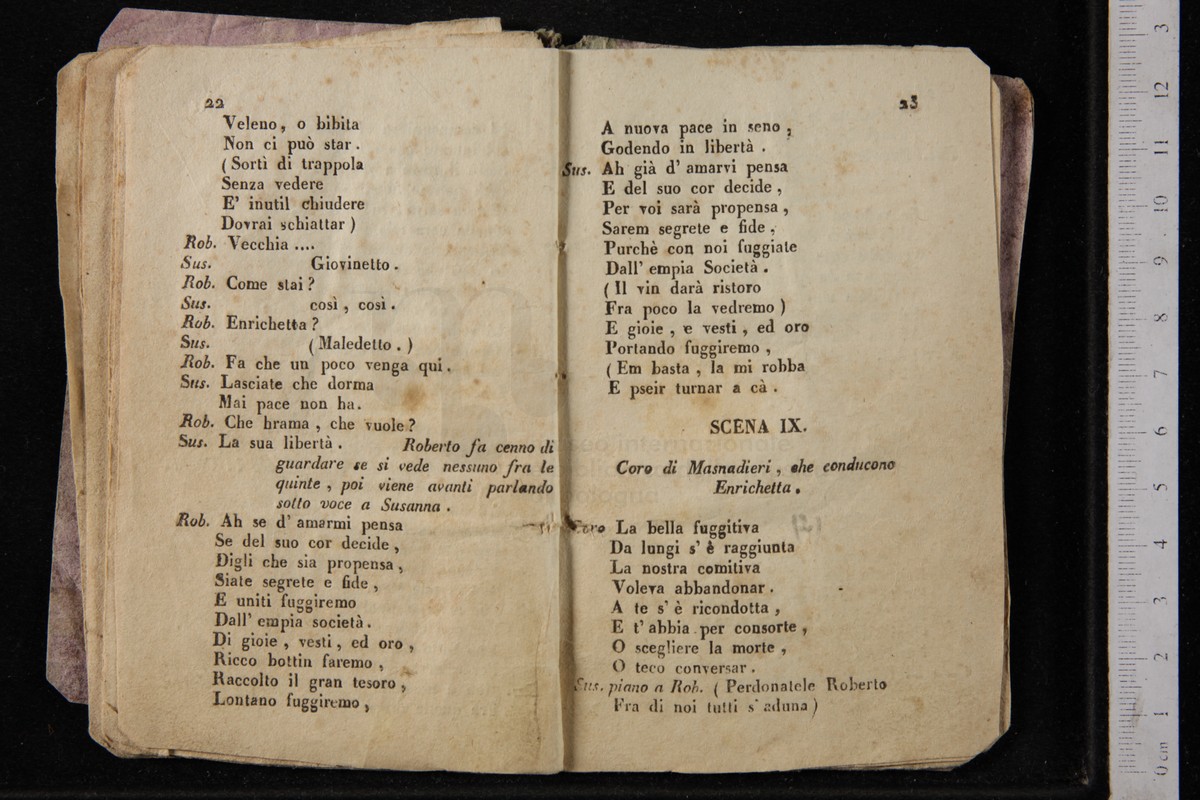 22
Veleno, o bibita
Non ci può star.
(Sortì di trappola
Senza vedere
E' inutil chiudere
Dovrai schiattar)
Rob. Vecchia ....
Sus. Giovinetto.
Rob. Come stai?
Sus. così, così.
Rob. Enrichetta?
Sus. (Maledetto.)
Rob. Fa che un poco venga qui.
Sus. Lasciate che dorma
Mai pace non ha.
Rob. Che brama, che vuole?
Sus. La sua libertà. Roberto fa cenno di
guardare se si vede nessuno fra le
quinte, poi viene avanti parlando
sotto voce a Susanna.
Rob. Ah se d' amarmi pensa
Se del suo cor decide,
Digli che sia propensa,
Siate segrete e fide,
E uniti fuggiremo
Dall' empia società.
Di gioie, vesti, ed oro,
Ricco bottin faremo,
Raccolto il gran tesoro,
Lontano fuggiremo,
23
A nuova pace in seno,
Godendo in libertà.
Sus. Ah già d' amarvi pensa
E del suo cor decide,
Per voi sarà propensa,
Sarem segrete e fide,
Purchè con noi fuggiate
Dall' empia Società.
(Il vin darà ristoro
Fra poco la vedremo)
E gioie, e vesti, ed oro
Portando fuggiremo,
(Em basta, la mi robba
E pseir turnar a cà.
SCENA IX.
Coro di Masnadieri, che conducono
Enrichetta.
Coro La bella fuggitiva
Da lungi s' è raggiunta
La nostra comitiva
Voleva abbandonar.
A te s' è ricondotta,
E t' abbia per consorte,
O scegliere la morte,
O teco conversar.
Sus. piano a Rob. (Perdonatele Roberto
Fra di noi tutti s' aduna)
0 cm 1 2 3 4 5 6 7 8 9 10 11 12 13